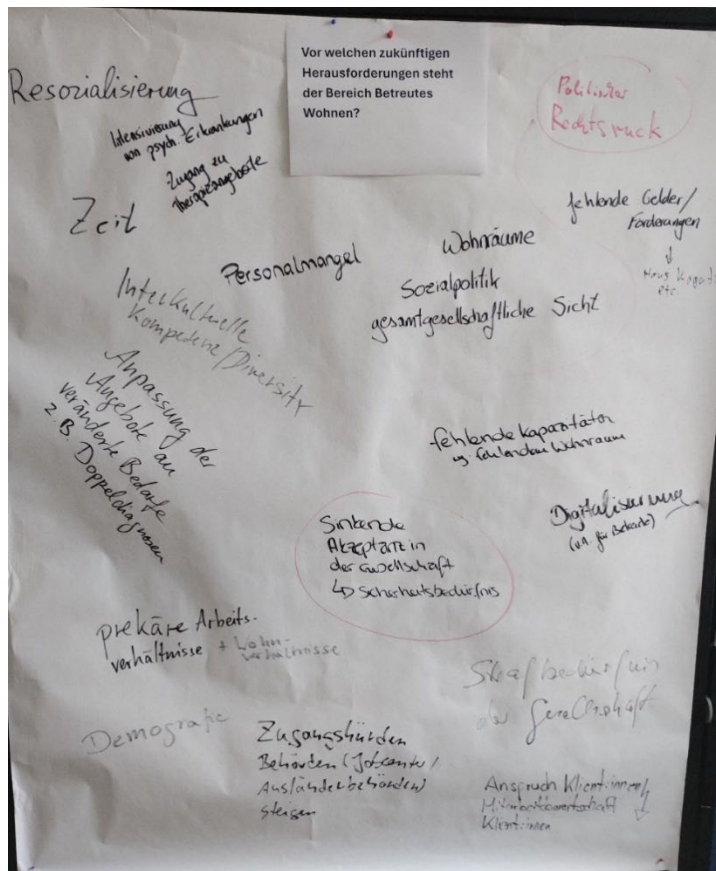 Vor welchen zukünftigen
Herausforderungen steht
der Bereich Betreutes
Wohnen?
Resozialisierung
Intensivierung
von psych. Erkrankungen
Zugang zu
Therapieangebote
Zeit
Politischer
Rechtsruck
fehlende Gelder/
Förderungen
↓
Haus Kapazit
etc.
Wohnräume
Personalmangel
Sozialpolitik
gesamtgesellschaftliche Sicht
Interkulturelle
Kompetenz/Diversity
Anpassung der
Angebote an
veränderte Bedarfe
z.B. Doppeldiagnosen
fehlende Kapazitäten
wg. fehlendem Wohnraum
Digitalisierung
(v.a. für Betreute)
Sinkende
Akzeptanz in
der Gesellschaft
↳ Sicherheitsbedürfnis
prekäre Arbeits-
verhältnisse + Wohn-
verhältnisse
Strafbedürfnis
der Gesellschaft
Demografie
Zugangshürden
Behörden (Jobcenter/
Ausländerbehörden)
steigen
Anspruch Klient:innen/
Klient:innen